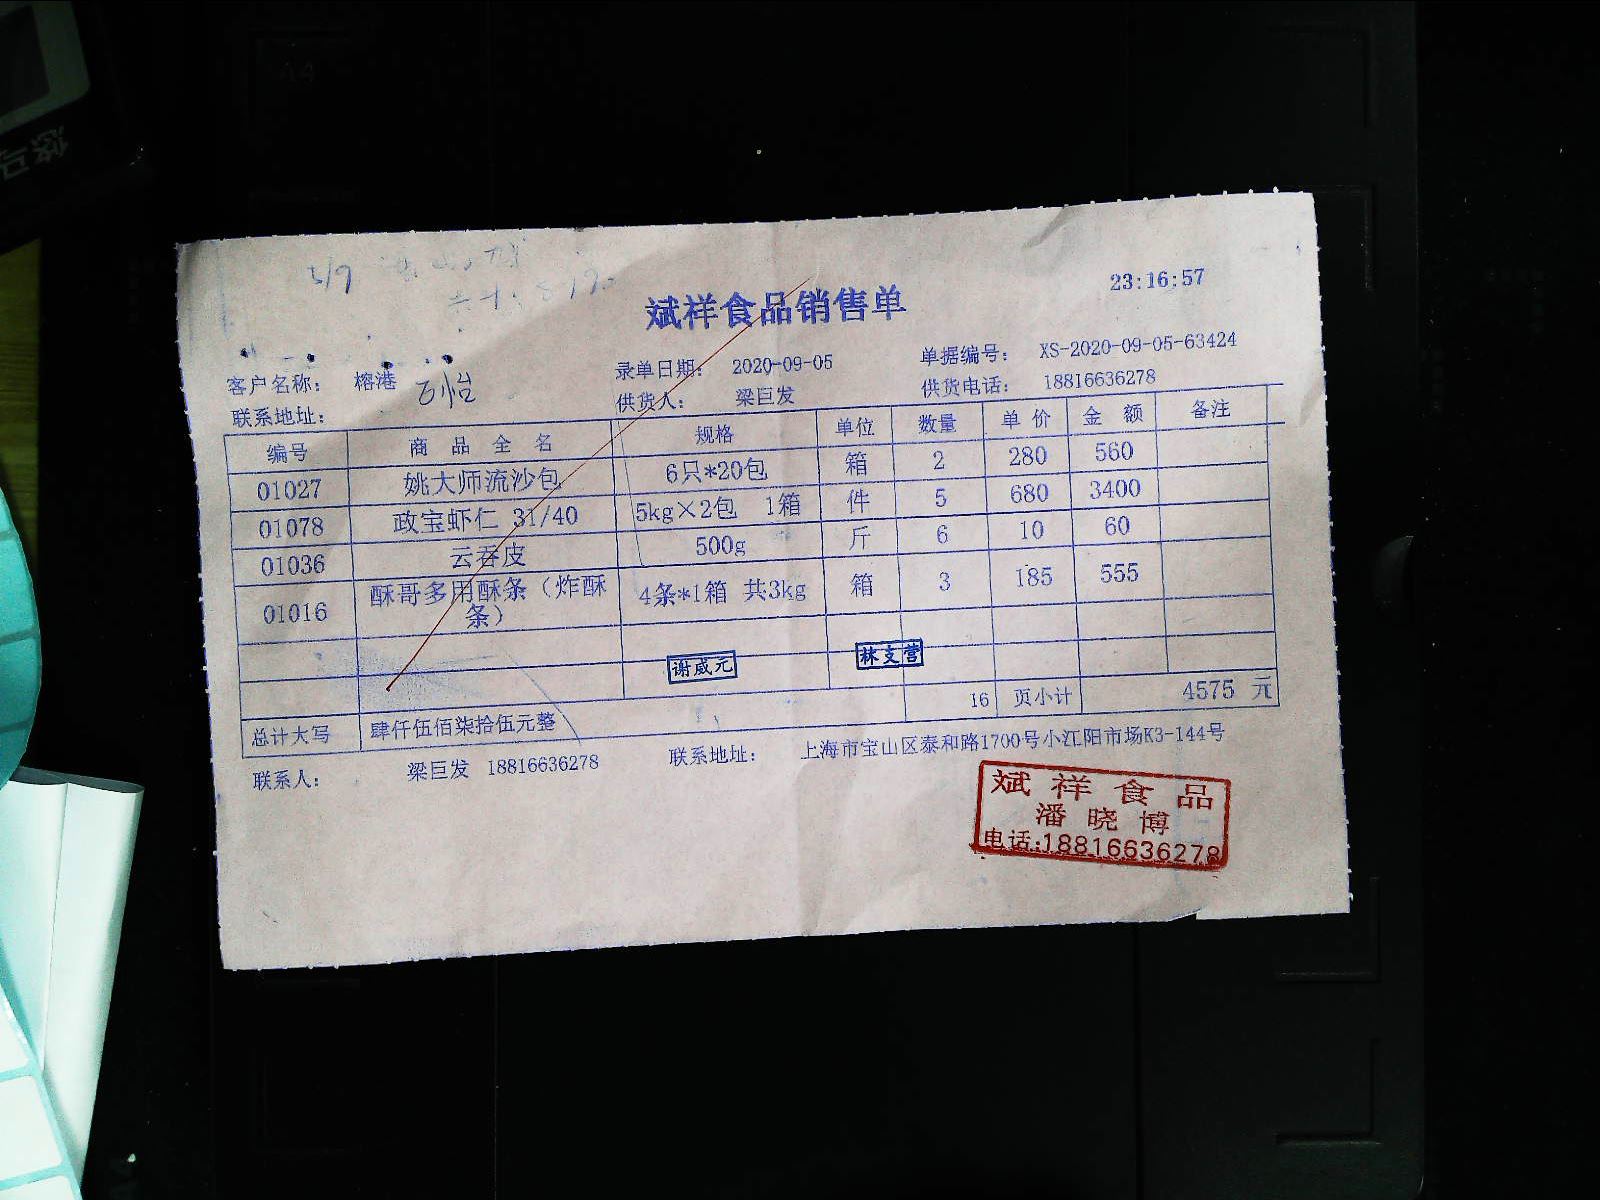 5/9
23:16:57
斌祥食品销售单
客户名称： 榕港 石怡 录单日期： 2020-09-05 单据编号： XS-2020-09-05-63424
联系地址： 供货人： 梁巨发 供货电话： 18816636278
编号 商 品 全 名 规格 单位 数量 单 价 金 额 备注
01027 姚大师流沙包 6只*20包 箱 2 280 560
01078 政宝虾仁 31/40 5kg×2包 1箱 件 5 680 3400
01036 云吞皮 500g 斤 6 10 60
01016 酥哥多用酥条（炸酥条） 4条*1箱 共3kg 箱 3 185 555
谢威元 林支营
16 页小计 4575 元
总计大写 肆仟伍佰柒拾伍元整
联系人： 梁巨发 18816636278 联系地址： 上海市宝山区泰和路1700号小江阳市场K3-144号
斌祥食品
潘晓博
电话:18816636278
A4